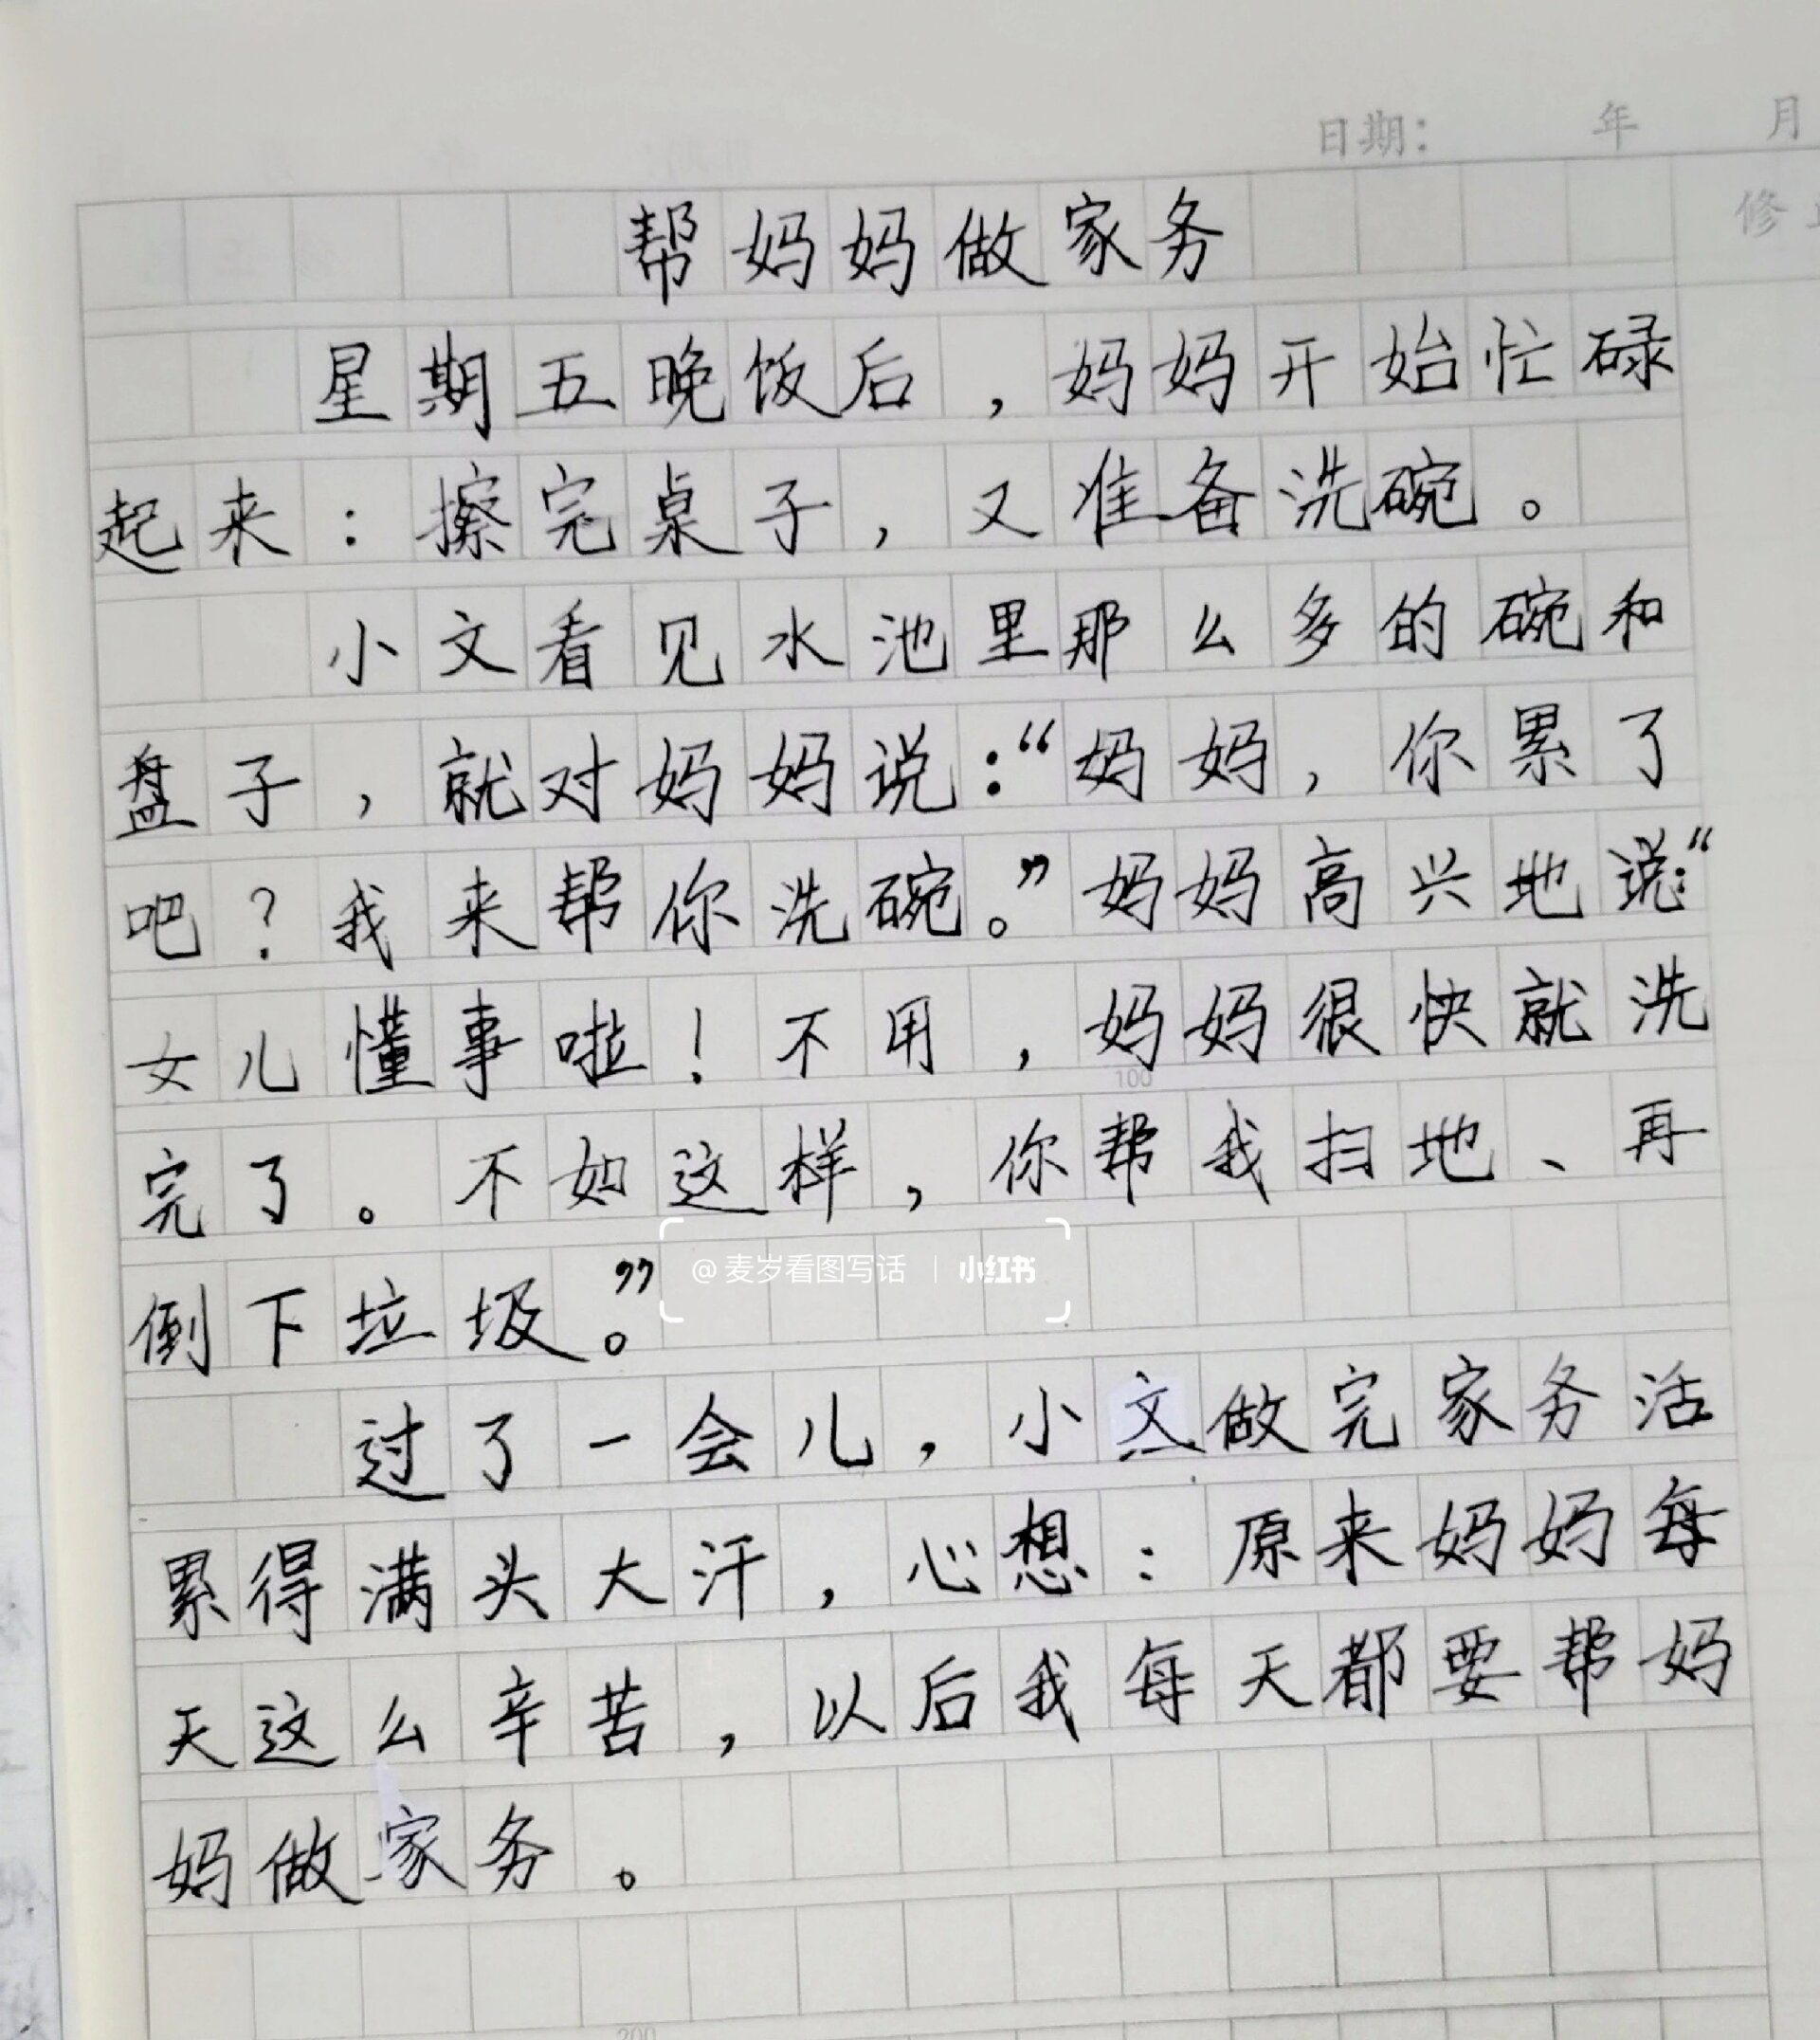 日期： 年 月
修
帮妈妈做家务
星期五晚饭后，妈妈开始忙碌
起来：擦完桌子，又准备洗碗。
小文看见水池里那么多的碗和
盘子，就对妈妈说：“妈妈，你累了
吧？我来帮你洗碗。”妈妈高兴地说：“
女儿懂事啦！不用，妈妈很快就洗
100
完了。不如这样，你帮我扫地、再
倒下垃圾。”
@麦岁看图写话 | 小红书
过了一会儿，小文做完家务活
累得满头大汗，心想：原来妈妈每
天这么辛苦，以后我每天都要帮妈
妈做家务。
200